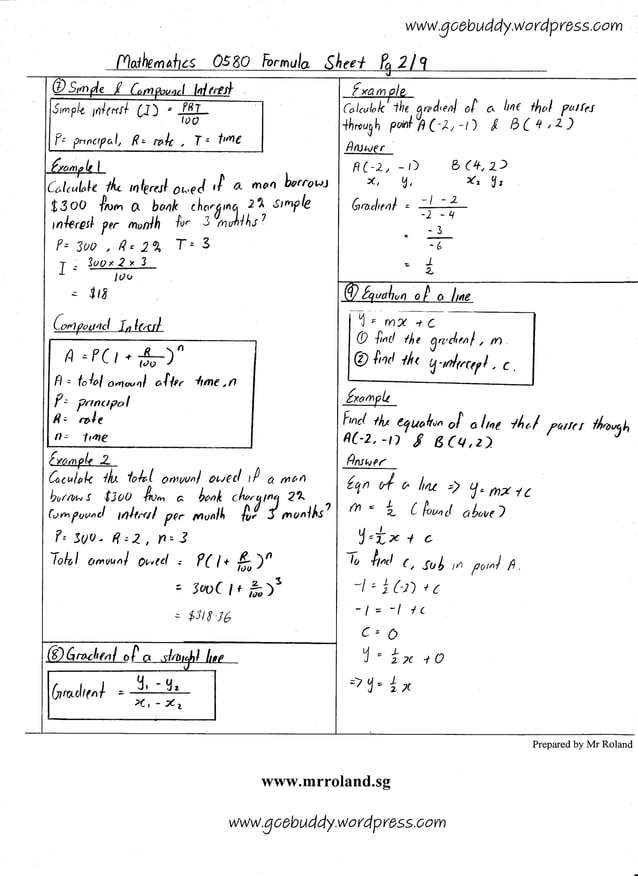 www.gcebuddy.wordpress.com
Mathematics 0580 Formula Sheet Pg 2/9
⑦ Simple & Compound Interest
Simple interest (I) = PRT/100
P = principal, R = rate, T = time
Example 1
Calculate the interest owed if a man borrows
$300 from a bank charging 2% simple
interest per month for 3 months?
P = 300, R = 2% T = 3
I = 300 × 2 × 3 / 100
= $18
Compound Interest
A = P(1 + R/100)^n
A = total amount after time, n
P = principal
R = rate
n = time
Example 2
Caculate the total amount owed if a man
borrows $300 from a bank charging 2%
compound interest per month for 3 months?
P = 300, R = 2, n = 3
Total amount owed = P(1 + R/100)^n
= 300(1 + 2/100)^3
= $318.36
⑧ Gradient of a straight line
Gradient = y₁ - y₂ / x₁ - x₂
Example
Calculate the gradient of a line that passes
through point A(-2, -1) & B(4, 2)
Answer
A(-2, -1) B(4, 2)
x₁ y₁ x₂ y₂
Gradient = -1 - 2 / -2 - 4
= -3/-6
= 1/2
⑨ Equation of a line
y = mx + c
① find the gradient, m.
② find the y-intercept, c.
Example
Find the equation of a line that passes through
A(-2, -1) & B(4, 2)
Answer
Eqn of a line => y = mx + c
m = 1/2 (found above)
y = 1/2 x + c
To find c, sub in point A.
-1 = 1/2 (-2) + c
-1 = -1 + c
c = 0
y = 1/2 x + 0
=> y = 1/2 x
Prepared by Mr Roland
www.mrroland.sg
www.gcebuddy.wordpress.com